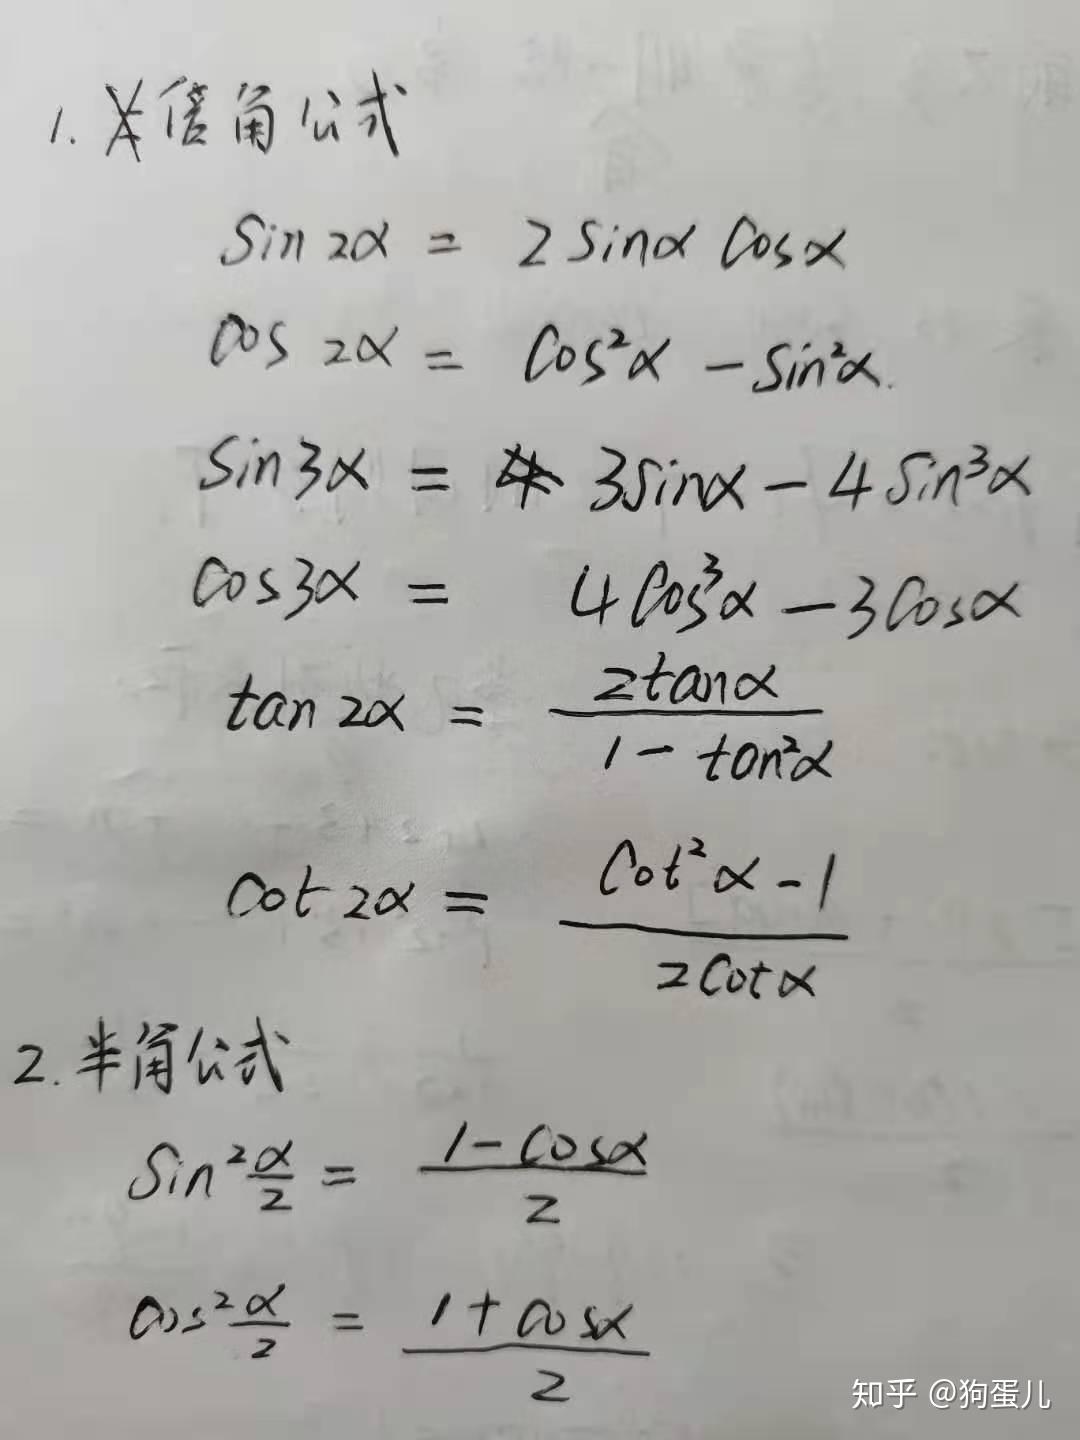 1. 倍角公式
Sin 2α = 2 Sinα Cosα
Cos 2α = Cos²α - Sin²α.
Sin3α = 3Sinα - 4Sin³α
Cos3α = 4Cos³α - 3Cosα
tan 2α = 2tanα / 1 - tan²α
Cot 2α = Cot²α - 1 / 2Cotα
2. 半角公式
Sin² α/2 = 1 - Cosα / 2
Cos² α/2 = 1 + Cosα / 2
知乎 @狗蛋儿